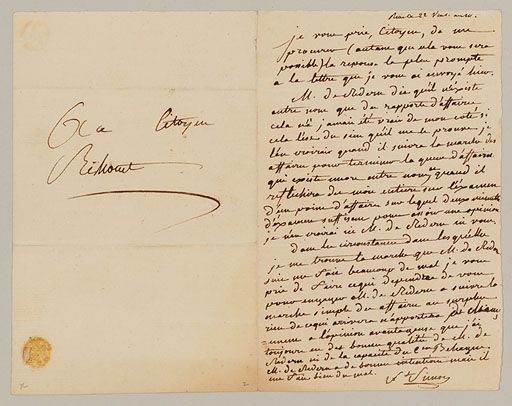 Au Citoyen
Réhouel
je vous prie, Citoyen, de me
procurer (autant que cela vous sera
possible) la reponse la plus prompte
a la lettre que je vous ai envoyé hier.
M. de Redern dit qu'il n'existe
entre nous que des rapports d'affaires
cela n'a jamais été vrai de mon coté si
cela l'est du sien qu'il me le prouve, je
l'en croirai quand il suivra la marche des
affaires pour terminer la queue d'affaires
qui existe encore entre nous, quand il
reflechira de mon
d'un point d'affaire sur lequel deux minutes
d'examen suffisent pour avoir une opinion
je n'en croirai ni M. de Redern ni vous.
Dans les circonstances dans lesquelles
je me trouve la marche que M. de Redern
suit me fait beaucoup de mal je vous
prie de faire ce qui dependra de vous
pour engager M. de Redern a suivre la
marche simple des affaires au surplus
rien de ce qui arrivera n'apportera de chan
gement a l'opinion avantageuse que j'ai
toujours eu des bonnes qualités de M. de
Redern ni de la capacité du Cen
M. de Redern a de bonnes intentions mais il
me fait bien du mal.
St Simon